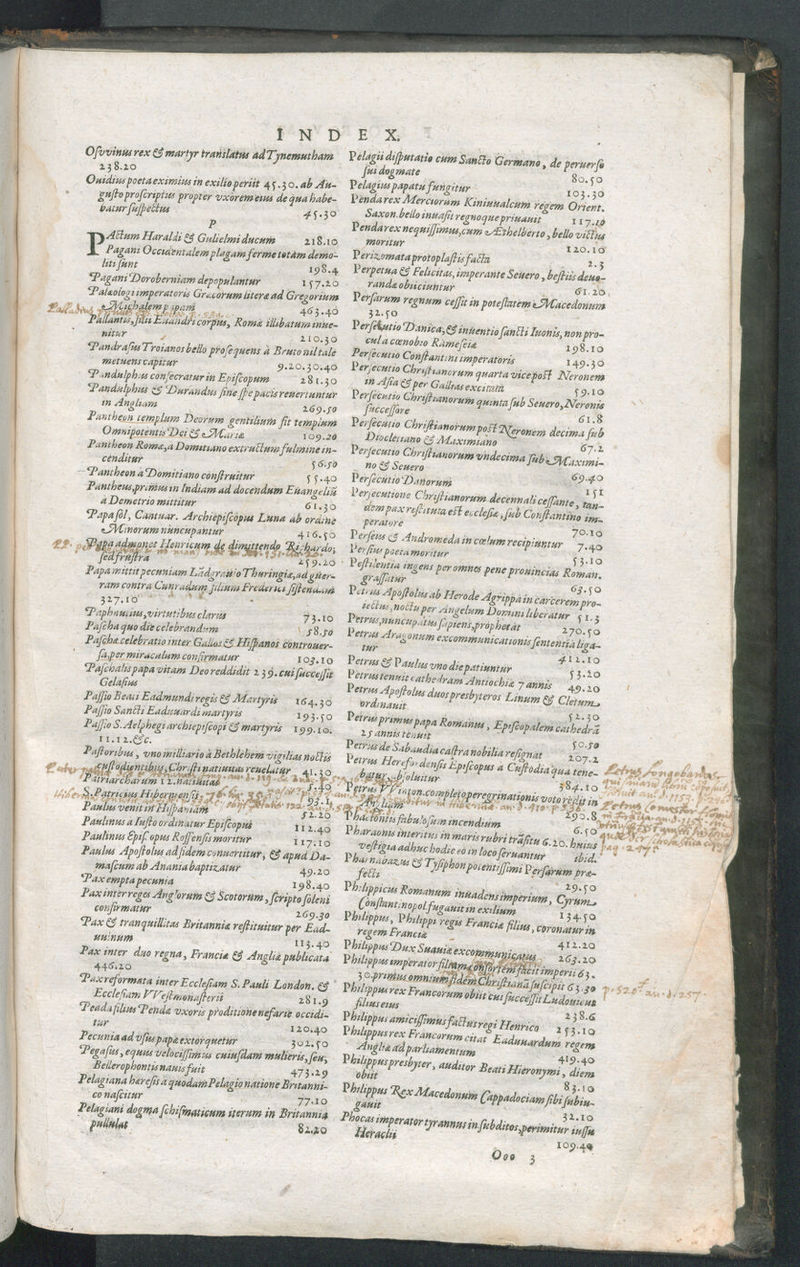 INDEX.
Osvvinus rex & martyr translatus ad Tynemutham
238.20
Ouidius poeta eximius in exilio periit 45.30. ab Au-
gusto proscriptus propter vxorem eius de qua habe-
batur suspectus 45.30
P
PActum Haraldi & Gulielmi ducum 218.10
Pagani Occidentalem plagam ferme totam demo-
liti sunt 198.4
Pagani Doroberniam depopulantur 157.20
Palæologi imperatoris Græcorum literæ ad Gregorium
Michalem papam 463.40
Pallantis, filii Euandri corpus, Romæ illibatum inue-
nitur 210.30
Pandrasus Troianos bello prosequens à Bruto nil tale
metuens capitur 9.20.30.40
Pandulphus consecratur in Episcopum 281.30
Pandulphus & Durandus sine spe pacis reuertuntur
in Angliam 269.50
Pantheon templum Deorum gentilium fit templum
Omnipotentis Dei & Mariæ 109.20
Pantheon Romæ, à Domitiano extructum fulmine in-
cenditur 56.50
Pantheon à Domitiano construitur 55.40
Pantheus, primus in Indiam ad docendum Euangeliũ
à Demetrio mittitur 61.30
Papa sol, Cantuar. Archiepiscopus Luna ab ordine
Minorum nuncupantur 416.50
Papa admonet Henricum de dimittendo Richardo,
sed frustra 259.20
Papa mittit pecuniam Lãdgrauio Thuringiæ, ad guer-
ram contra Cunradum filium Frederici sistendam
327.10
Paphnutius, virtutibus clarus 73.10
Pascha quo die celebrandum 58.50
Paschæ celebratio inter Gallos & Hispanos controuer-
sa, per miraculum confirmatur 103.10
Paschalis papa vitam Deo reddidit 239. cui successit
Gelasius
Passio Beati Eadmundi regis & Martyris 164.30
Passio Sancti Eadwardi martyris 193.50
Passio S. Aelphegi archiepiscopi & martyris 199.10.
11.12.&c.
Pastoribus, vno milliario à Bethlehem vigilias noctis
custodientibus, Christi natiuitas reuelatur 41.30
Patriarcharum 12. natiuitas 5.40
S. Patricius Hibernensis, 93.1
Paulus venit in Hispaniam 52.20
Paulinus a Iusto ordinatur Episcopus 112.40
Paulinus Episcopus Roffensis moritur 117.10
Paulus Apostolus ad fidem conuertitur, & apud Da-
mascum ab Anania baptizatur 49.20
Pax empta pecunia 198.40
Pax inter reges Anglorum & Scotorum, scripto soleni
confirmatur 269.30
Pax & tranquillitas Britanniæ restituitur per Ead-
uuinum 113.40
Pax inter duo regna, Franciæ & Angliæ publicata
446.20
Pax reformata inter Ecclesiam S. Pauli London. &
Ecclesiam VVestmonasterii 281.9
Peada filius Pendæ vxoris proditione nefarie occidi-
tur 120.40
Pecunia ad vsus papæ extorquetur 302.50
Pegasus, equus velocissimus cuiusdam mulieris, seu,
Bellerophontis nauis fuit 473.29
Pelagiana hæresis a quodam Pelagio natione Britanni-
co nascitur 77.10
Pelagiani dogma schismaticum iterum in Britannia
pullulat 82.20
Pelagii disputatio cum Sancto Germano, de peruerso
sui dogmate 80.50
Pelagius papatu fungitur 103.30
Penda rex Merciorum Kiniuualcum regem Orient.
Saxon. bello inuasit regnoque priuauit 117.10
Penda rex nequissimus, cum Æthelberto, bello victus
moritur 120.10
Perizomata protoplastis facta 2.3
Perpetua & Felicitas, imperante Seuero, bestiis deuo-
randæ obiiciuntur 61.20
Persarum regnum cessit in potestatem Macedonum
32.50
Persecutio Danica, & inuentio sancti Iuonis, non pro-
cul a cœnobio Rameseiæ 198.10
Persecutio Constantini imperatoris 149.30
Persecutio Christianorum quarta vice post Neronem
in Asia & per Gallias excitata 59.10
Persecutio Christianorum quinta sub Seuero, Neronis
successore 61.8
Persecutio Christianorum post Neronem decima sub
Diocletiano & Maximiano 67.2
Persecutio Christianorum vndecima sub Maximi-
no & Seuero 69.40
Persecutio Danorum 151
Persecutione Christianorum decennali cessante, tan-
dem pax restituta est ecclesiæ, sub Constantino im-
peratore 70.10
Perseus & Andromeda in cœlum recipiuntur 7.40
Persius poeta moritur 53.10
Pestilentia ingens per omnes pene prouincias Roman.
grassatur 63.50
Petrus Apostolus ab Herode Agrippa in carcerem pro-
iectus, noctu per Angelum Domini liberatur 51.3
Petrus, nuncupatus sapiens, prophetat 270.50
Petrus Aragonum excommunicationis sententia liga-
tur 412.10
Petrus & Paulus vno die patiuntur 53.20
Petrus tenuit cathedram Antiochiæ 7 annis 49.20
Petrus Apostolus duos presbyteros Linum & Cletum
ordinauit 52.30
Petrus primus papa Romanus, Episcopalem cathedrã
25 annis tenuit 50.50
Petrus de Sabaudia castra nobilia resignat 207.2
Petrus Herefordensis Episcopus a Custodia qua tene-
batur, absoluitur 384.10
Petrus VVinton. completo peregrinationis voto rediit in
Angliam 290.8
Phaetontis fabulosum incendium 6.50
Pharaonis interitus in maris rubri trãsitu 6.20. huius
vestigia adhuc hodie eo in loco seruantur ibid.
Pharnabazus & Tysiphon potentissimi Persarum præ-
fecti 29.50
Philippicus Romanum inuadens imperium, Cyrum
Constantinopol. fugauit in exilium 134.50
Philippus, Philippi regis Franciæ filius, coronatur in
regem Franciæ 412.20
Philippus Dux Suauiæ excommunicatus 263.20
Philippus imperator filium consortem facit imperii 63.
30. primus omnium fidem Christianã suscipit 63.30
Philippus rex Francorum obiit cui successit Ludouicus
filius eius 238.6
Philippus amicissimus factus regi Henrico 253.10
Philippus rex Francorum citat Eaduuardum regem
Angliæ ad parliamentum 419.40
Philippus presbyter, auditor Beati Hieronymi, diem
obiit 83.10
Philippus Rex Macedonum Cappadociam sibi subiu-
gauit 32.10
Phocas imperator tyrannus in subditos, perimitur iussu
Heraclii 109.40
Ooo 3
Petrus Longobardus
p. 520. an. d. 257.